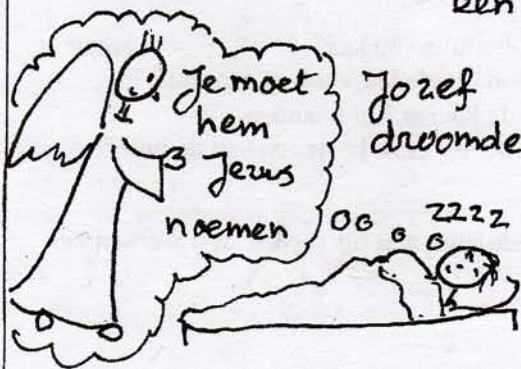 een
Je moet
hem
Jezus
noemen
Jozef
droomde
zzzz